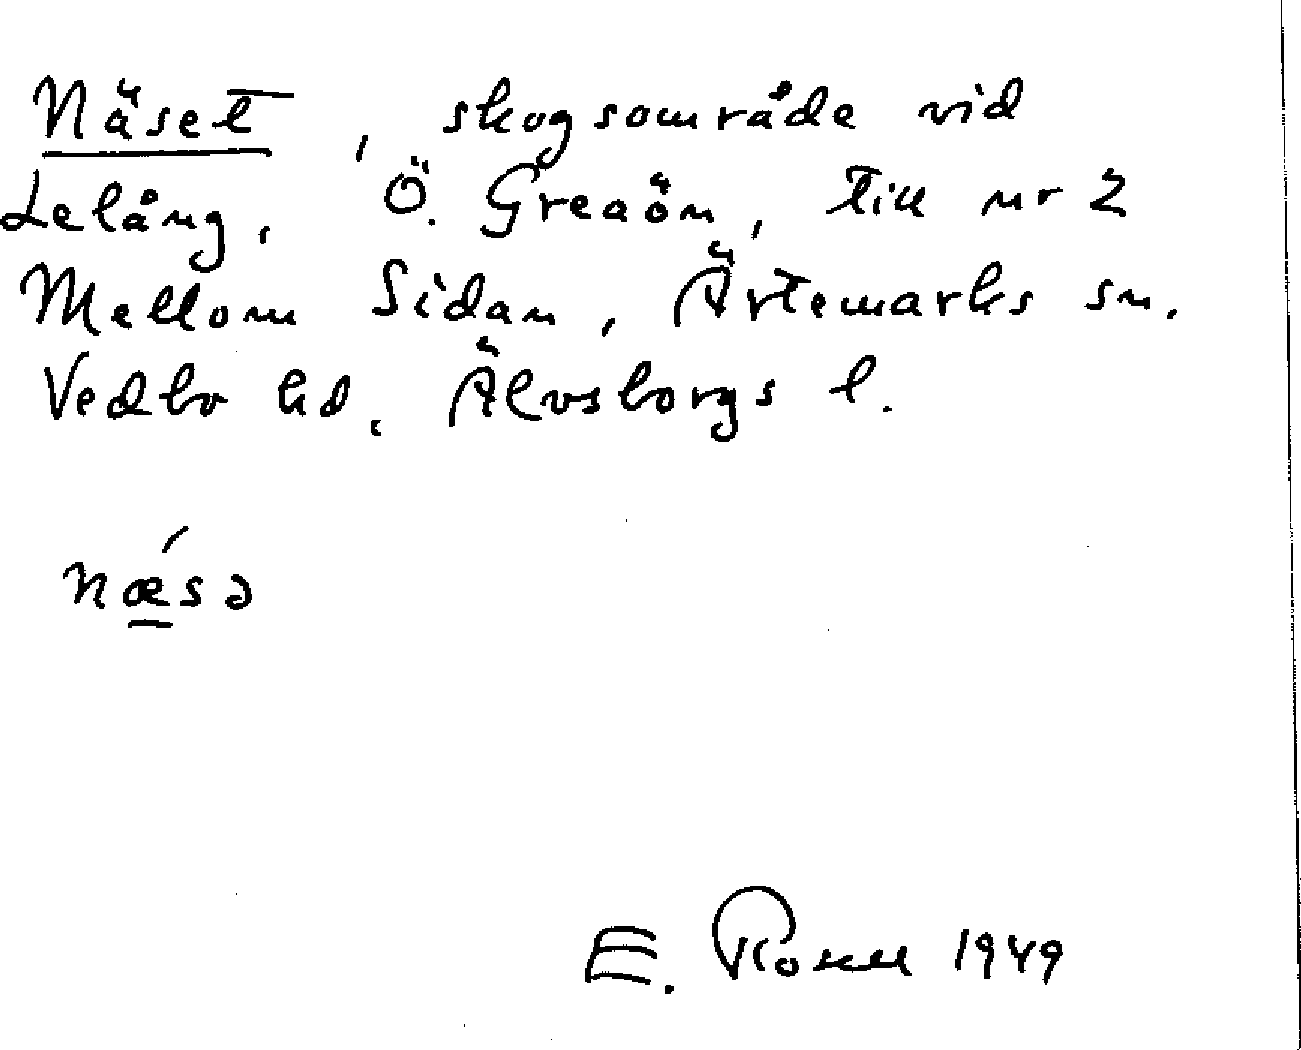 Näset, skogsområde vid
Lelång, Ö. Greaön, till nr 2
Mellom Sidan, Ärtemarks sn.
Vedbo hd, Älvsborgs l.
nǽ̱sə
E. 1949